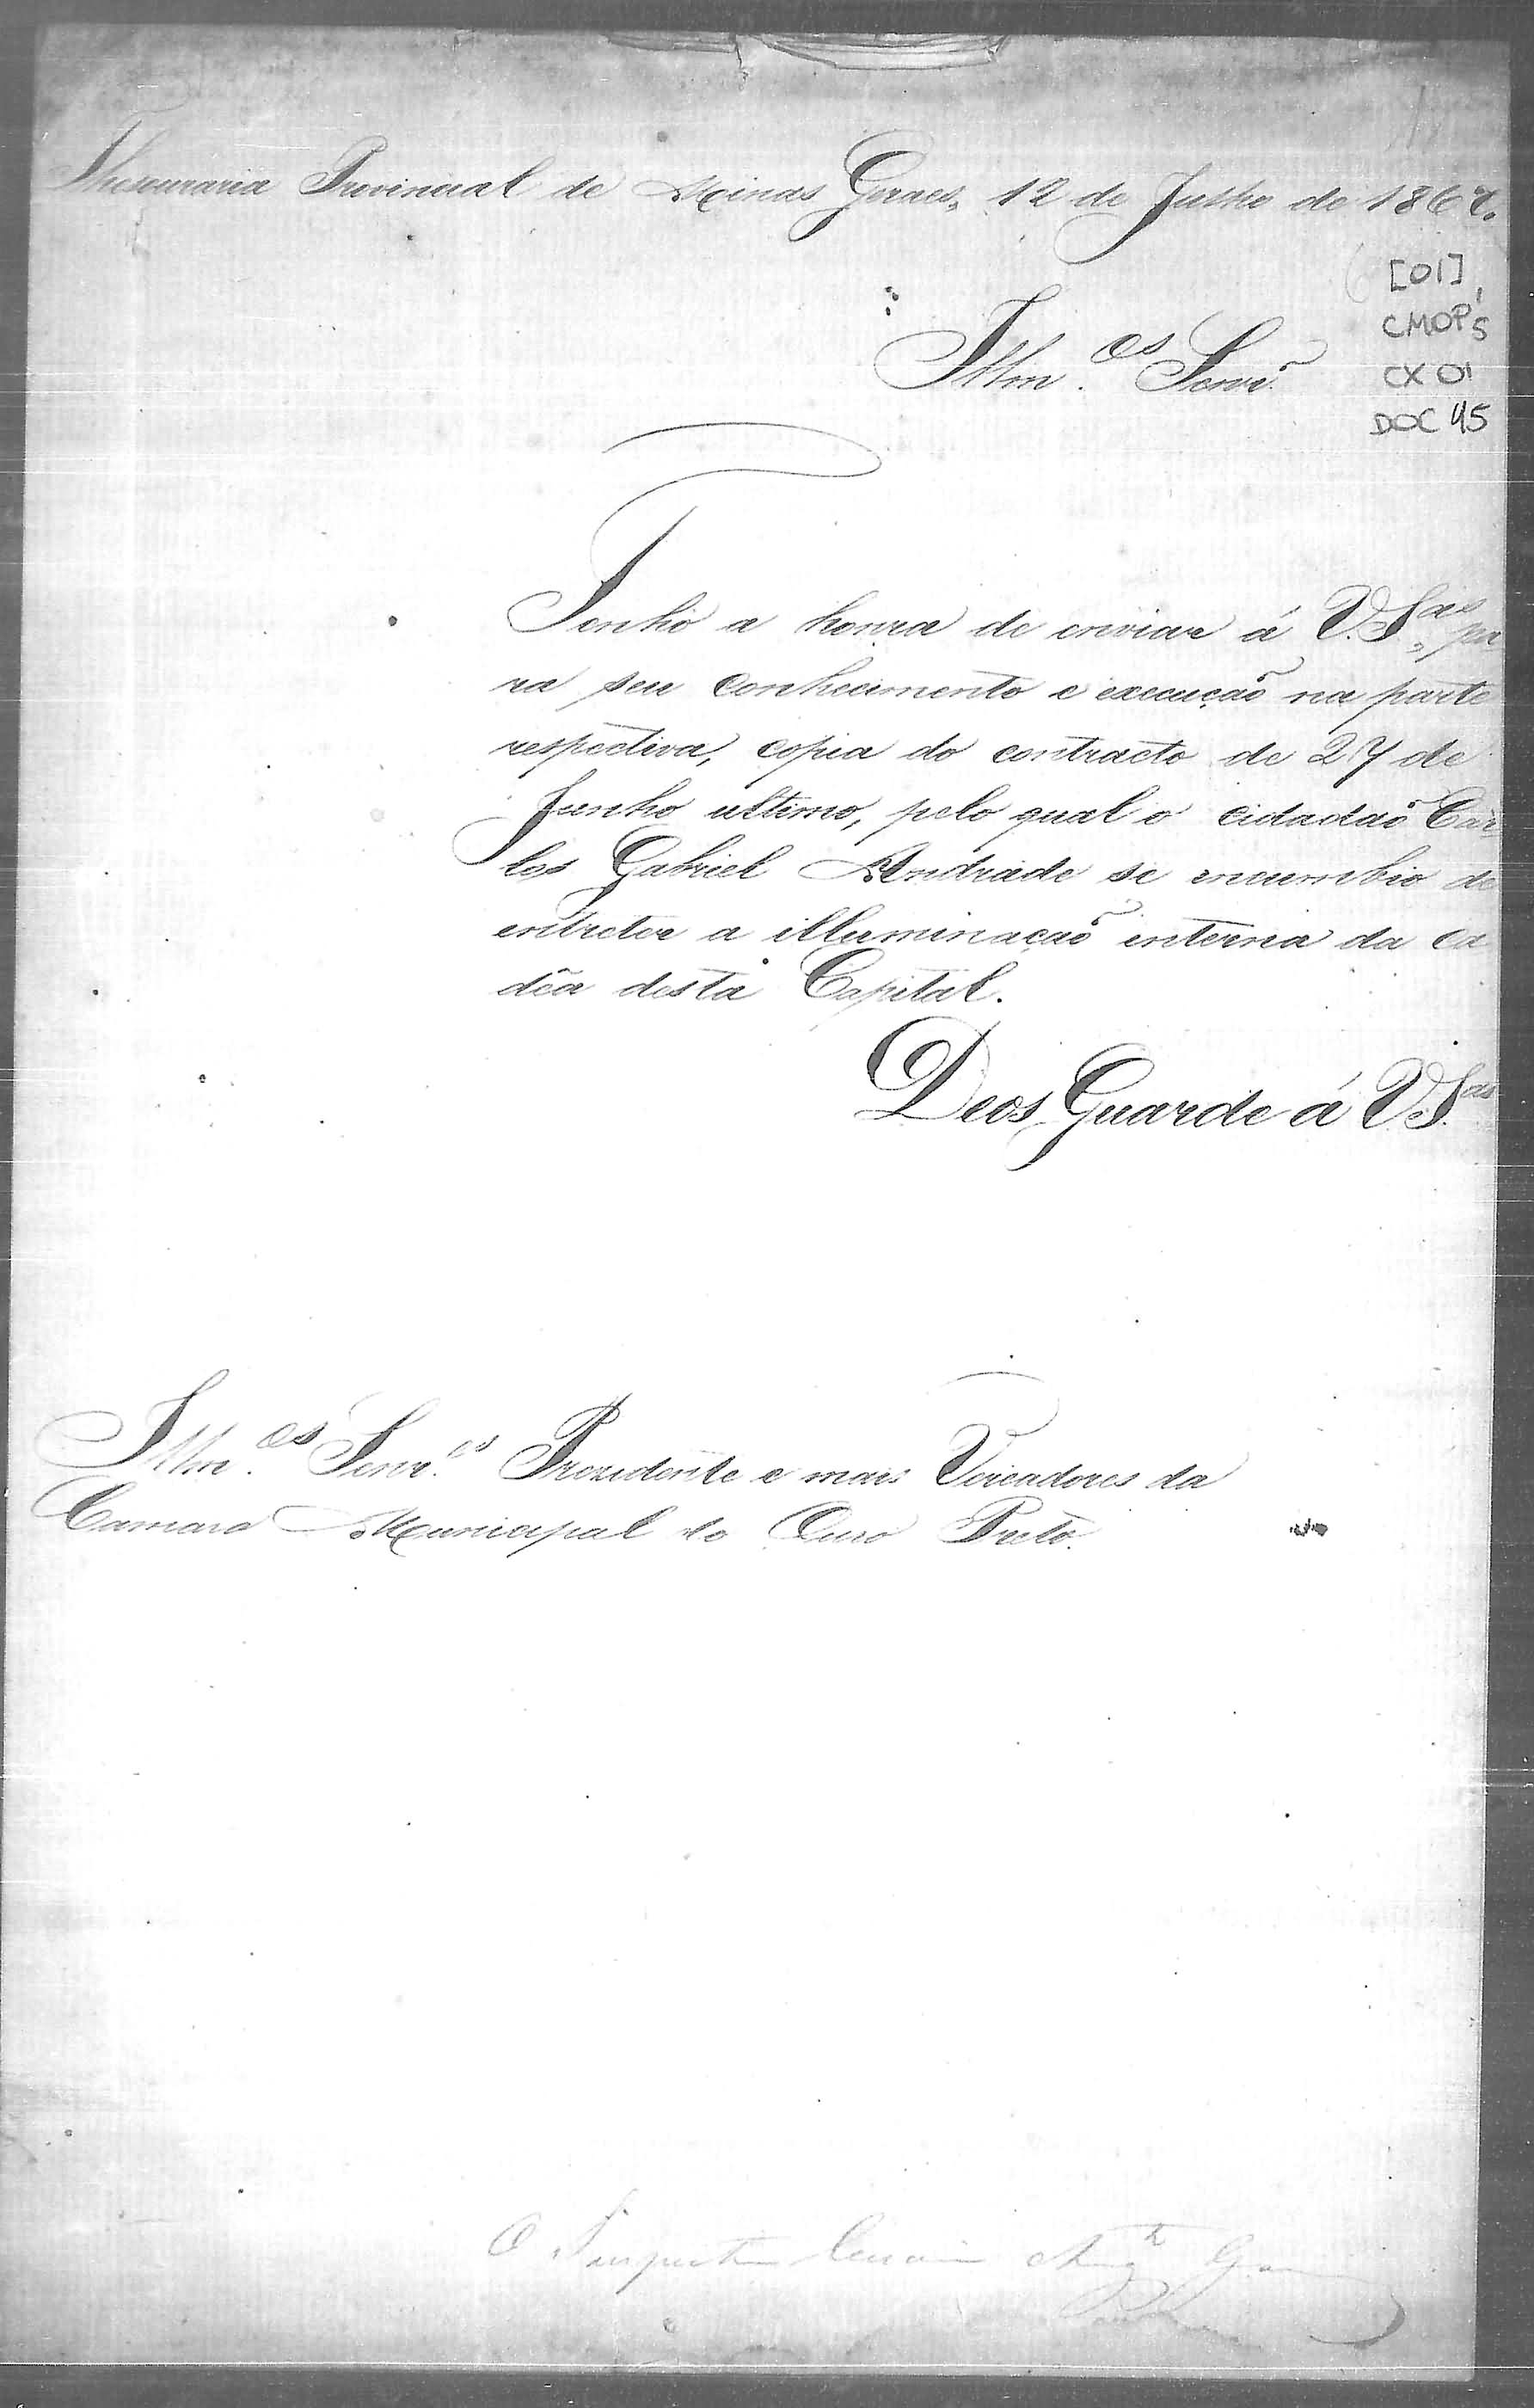 Thesouraria Provincial de Minas Geraes, 12 de Julho de 1867.
[01]
CMOP
CX 01
DOC 45
Illm.os Senr.
Tenho a honra de enviar á V. S.as, pa
ra seu conhecimento e execução na parte
respectiva, copia do contracto de 27 de
Junho ultimo, pelo qual o cidadão Car
los Gabriel Andrade se incumbio de
entreter a illuminação interna da ca
dêa desta Capital.
Deos Guarde á V. S.as
Illm.os Senr.es Prezidente e mais Vereadores da
Camara Municipal do Ouro Preto.
O Inspector